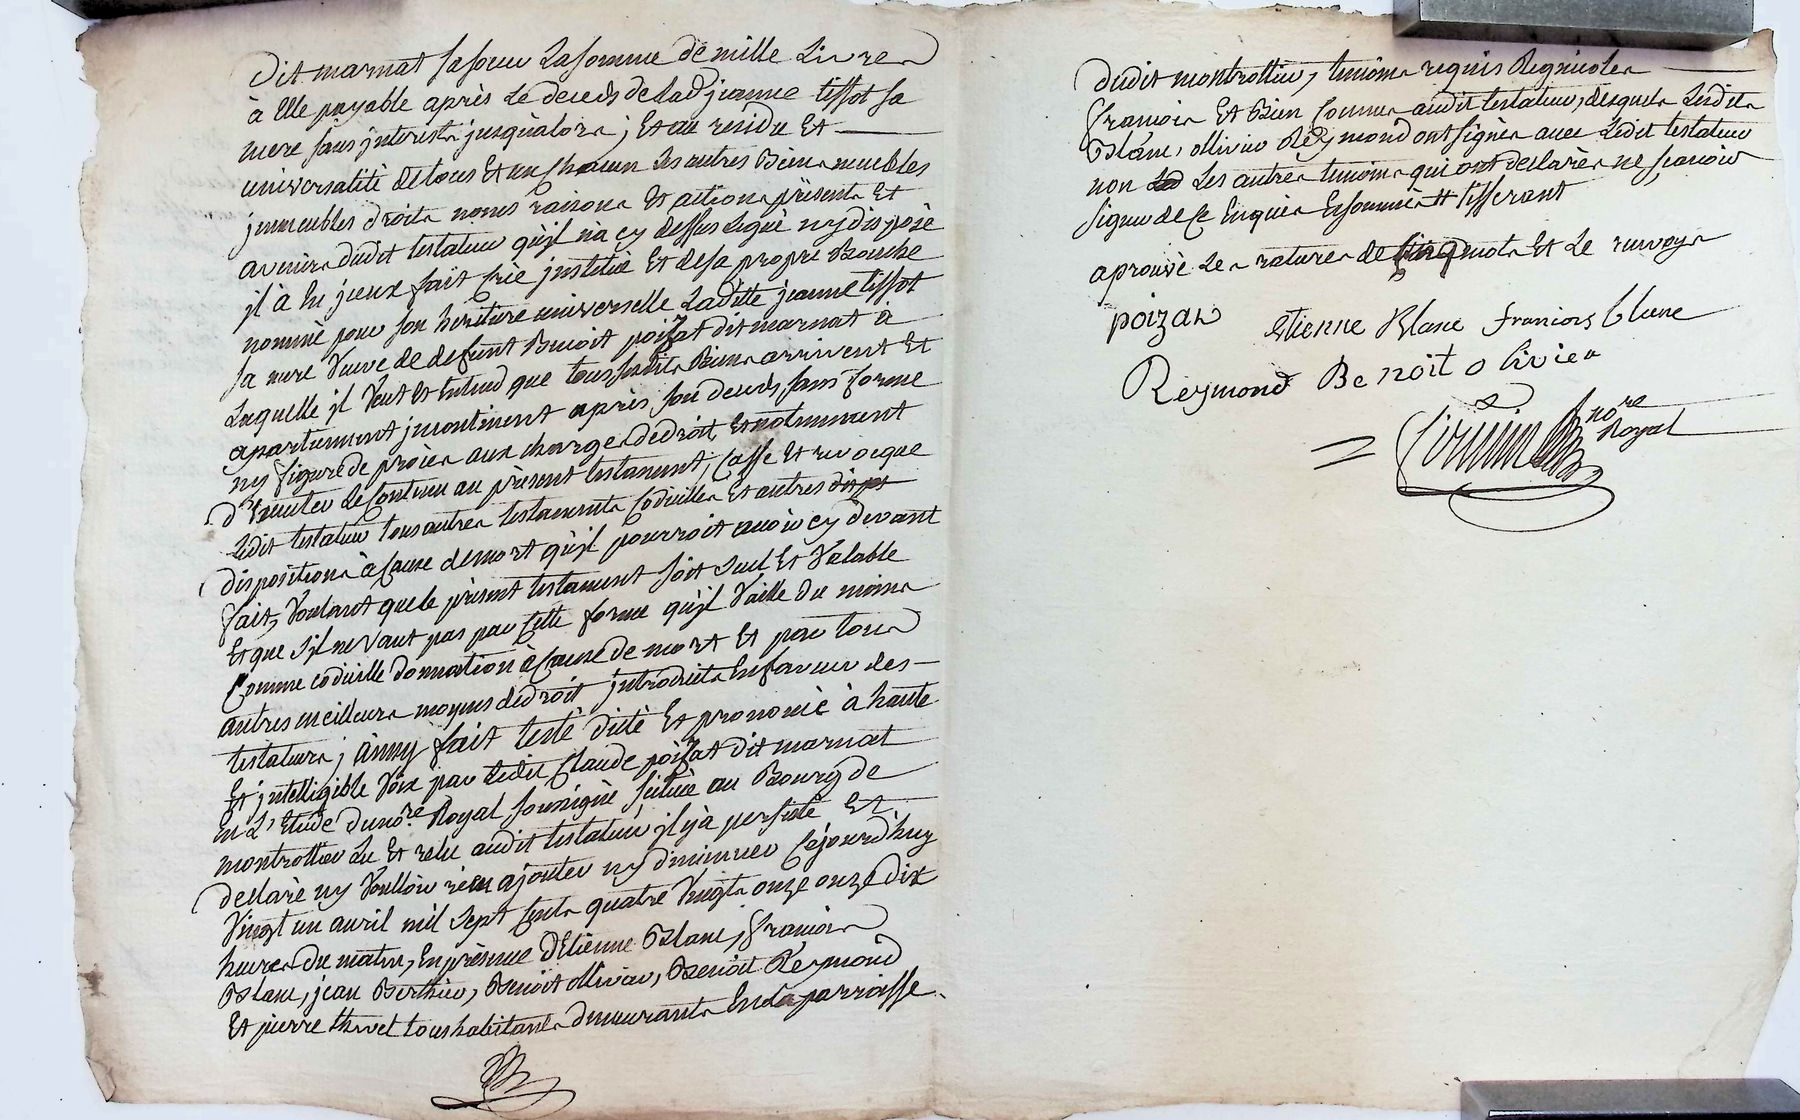 dit marnat sa soeur La somme de mille Livres
à Elle payable après Le deceds de lad jeanne tissot sa
mere sans jnterests jusqu'alors ; Et au residu Et
universalité de tous Et un chacun Les autres Biens meubles
jmmeubles droits noms raisons Et actions présents Et
avenirs dudit testateur qu'jl na cy dessus Legué ny disposé
jl à de jceux fait crée jnstitué Et de sa propre Bouche
nommé pour son heritiere universelle Laditte jeanne tissot
sa mere Veuve de defunt Benoit poizat dit marnat à
Laquelle jl Veut Et Entend que tous sesdits Biens arrivent Et
apartiennent jncontinent après son deceds sans forme
ny figure de procès aux charges de droit Et notamment
d'Executer Le Contenu au présent testament, Casse Et revocque
Ledit testateur tous autres testaments Codicilles Et autres disps
dispositions à Cause de mort qu'jl pourroit avoir cy devant
fait, Voulant que le présent testament soit seul Et Valable
Et que s'jl ne Vaut pas par Cette forme qu'jl Vaille du moins
Comme codicille donnation à Cause de mort Et par tous
autres meilleurs moyens de droit jntroduits En faveur des
testateurs ; ainsy fait testé dicté Et prononcé à haute
Et jntelligible Voix par Ledit Claude poizat dit marnat
En L'Etude du no.re Royal soussigné scituée au Bourg de
montrottier Lu Et relu audit testateur jl y à persisté Et
declaré ny Voulloir rien ajouter ny diminuer Cejourd'huy
Vingt un avril mil sept Cents quatre Vingts onze onze dix
heures du matin, En présence d'Etienne Blanc, francois
Blanc, jean Berthier, Benoit ollivier, Benoit Reymond
Et pierre thivel tous habitants demeurants En La parroisse
dudit montrottier, temoins requis Regnicoles
francois Et Bien Connus audit testateur, desquels Lesdits
Blanc, ollivier Reymond ont signés avec Ledit testateur
non Les autres temoins qui ont declarés ne scavoir
signer de ce Enquis Et sommés # tisserant
aprouvé Les ratures de cinq mots Et Le renvoy
poizat Etienne Blanc francois blanc
Reymond Benoit olivier
no.re
Royal